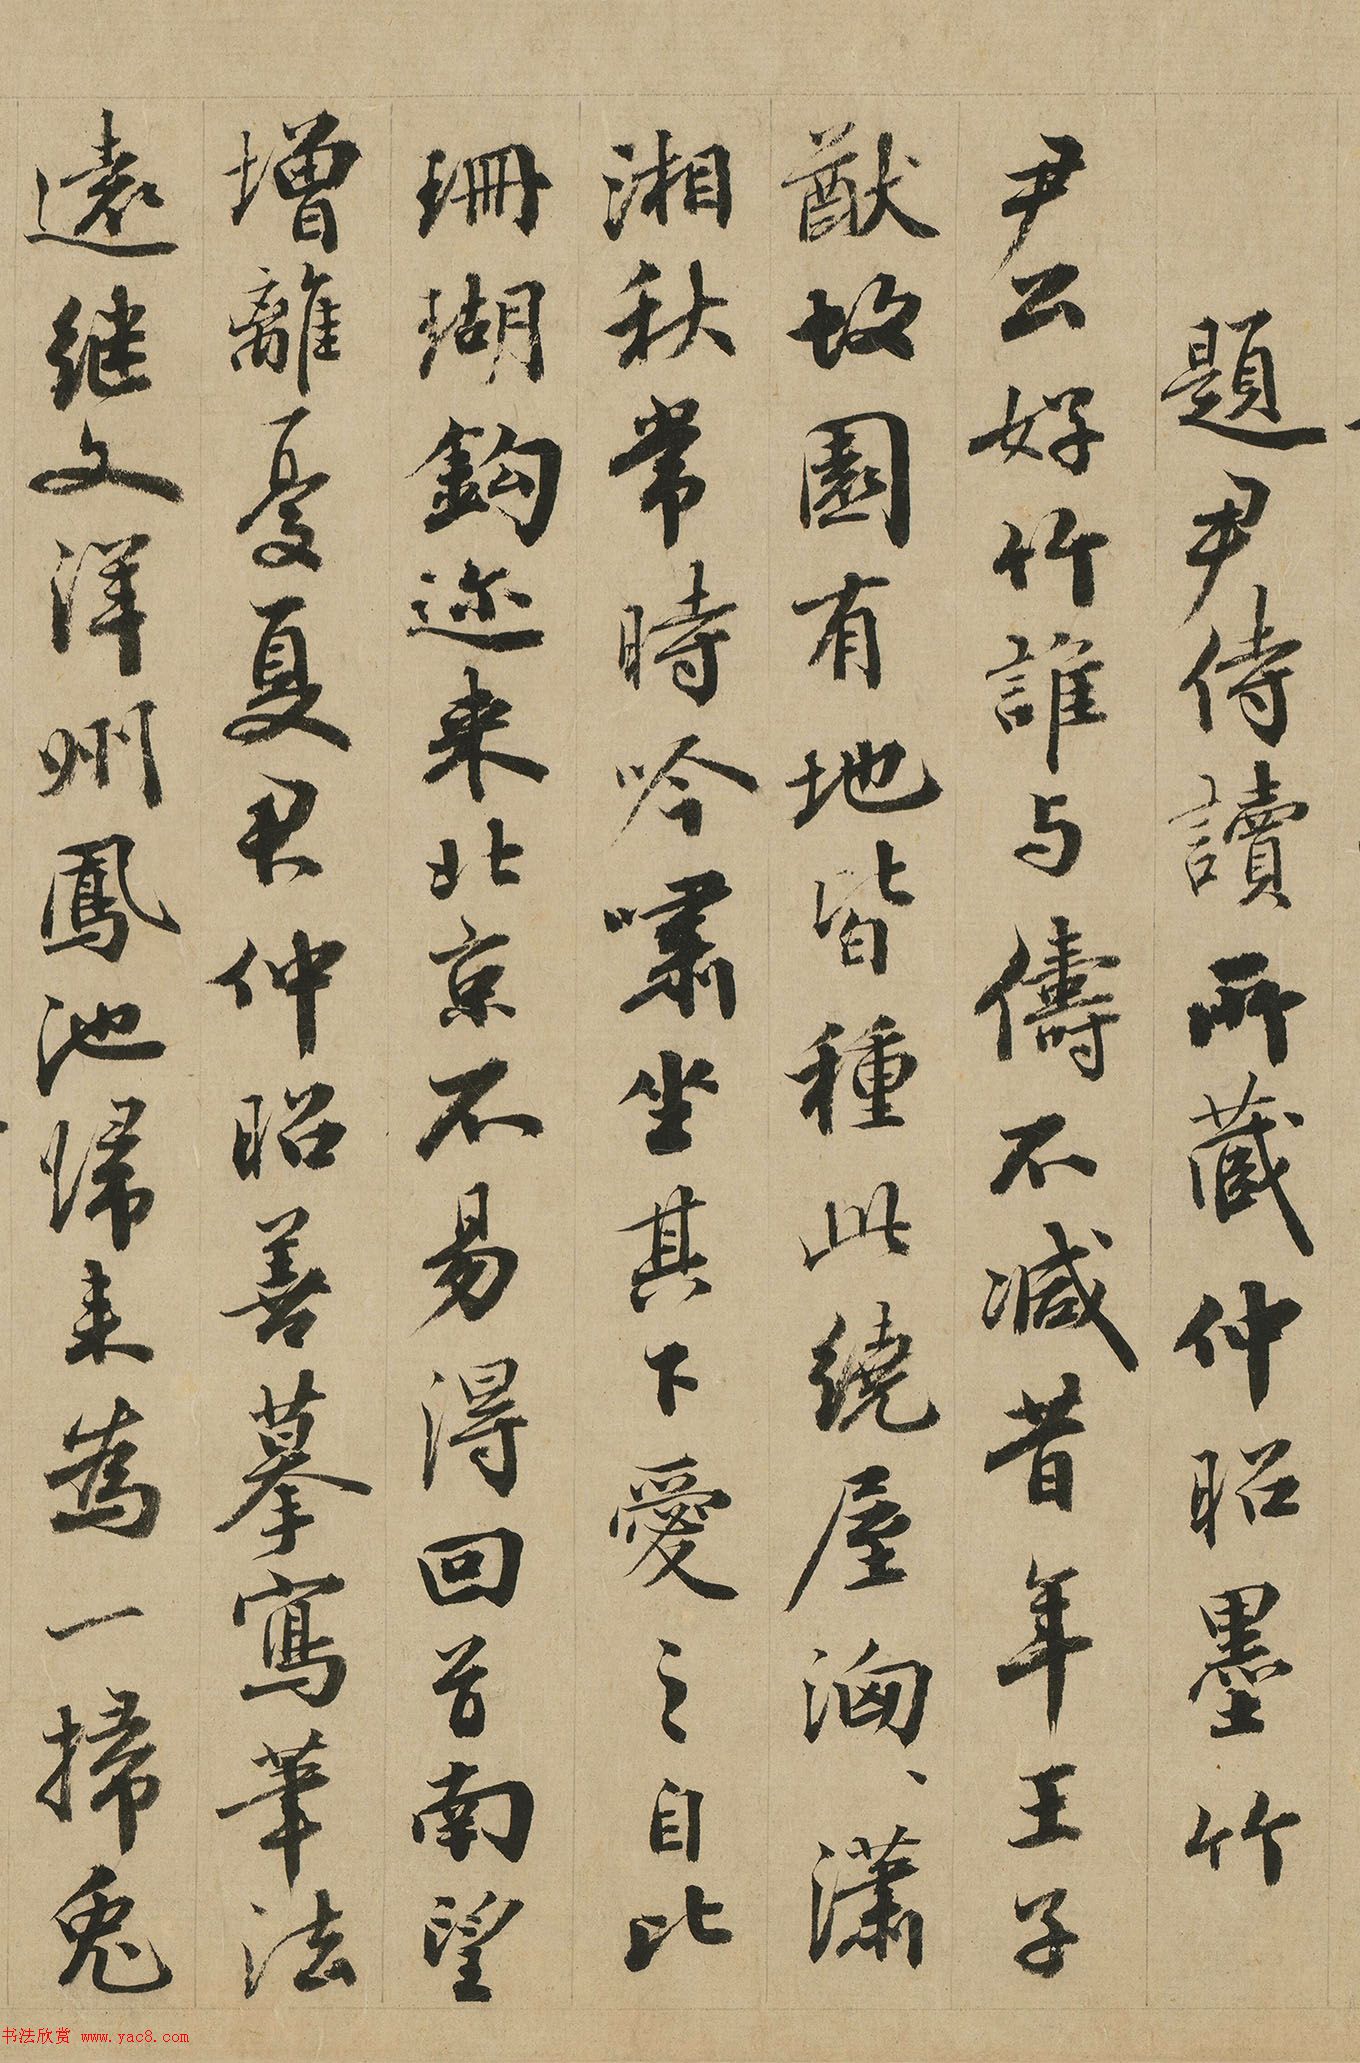 題尹侍讀所藏仲昭墨竹
尹公好竹誰与儔不減昔年王子
猷故園有地皆種此繞屋洶、瀟
湘秋常時吟嘯坐其下愛之自比
珊瑚鈎迩来北京不易得回首南望
增離憂夏君仲昭善摹寫筆法
遠继文洋州鳳池歸来為一掃兔
书法欣赏 www.yac8.com